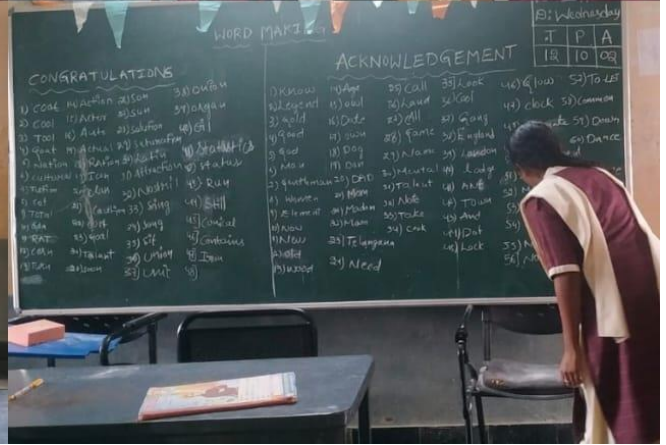 WORD MAKING
D: Wednesday
T P A
12 10 02
CONGRATULATIONS
1) Coat
2) Cool
3) Tool
4) Goat
5) Nation
6) cultural
8) Rat
9) Total
10) Sun
11) RAT
12) Corn
14) Action
15) Actor
16) Auto
17) Actual
18) Ration
19) Ican
23) Goal
27) Son
28) Sun
29) solution
30) saturation
Attraction
33) Sing
34) Song
35) Sit
36) Union
37) Unit
38) Onion
39) organ
40) Oil
41) Statistics
42) Status
43) Run
44) Still
45) Conical
46) Contains
47) Iron
48)
ACKNOWLEDGEMENT
1) Know
2) Legend
3) gold
4) Good
5) God
6) Man
7) Gentleman
8) Women
9) Element
10) Now
11) New
12) Old
13) Weed
14) Age
15) Owl
16) Date
17) Own
18) Dog
19) Don
20) DAD
21) Mom
22) Madam
23) Telangana
24) Need
25) Call
26) Land
27) All
28) Game
29) Name
30) Mental
31) Talent
32) Note
33) Take
34) Cook
35) Look
36) Cool
37) Gang
38) England
39) London
40) Lodge
41) Ant
42) Town
43) And
44) Dot
45) Lock
46) Glow
47) clock
52) To Let
58) Common
59) Down
60) Dance